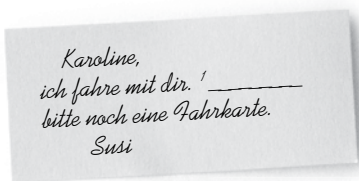 Karoline,
ich fahre mit dir. 1 ________
bitte noch eine Fahrkarte.
Susi